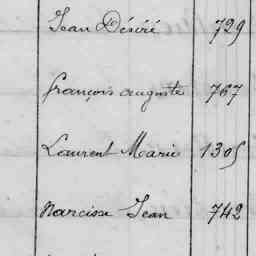 Jean Désiré 729
françois auguste 767
Laurent Marie 1305
Narcisse Jean 742